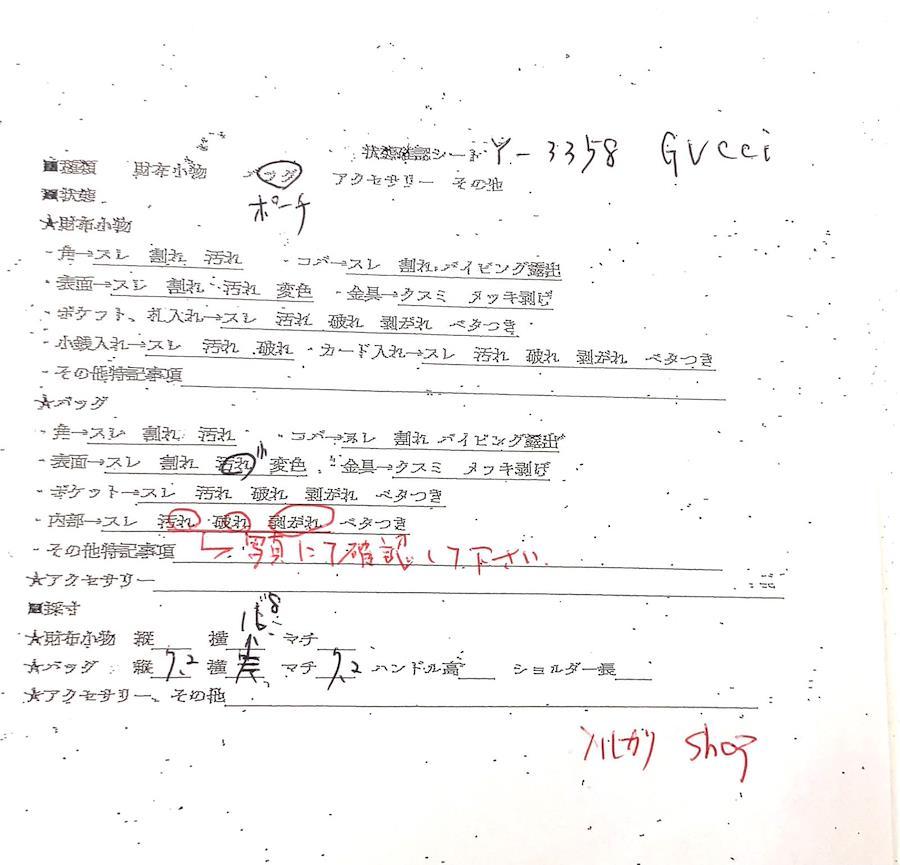 状態確認シート Y-3358 GUCCI
■種類 財布小物 バッグ アクセサリー その他
■状態 ポーチ
★財布小物
・角→スレ 割れ 汚れ ・コバ→スレ 割れ パイピング露出
・表面→スレ 割れ 汚れ 変色 ・金具→クスミ メッキ剥げ
・ポケット、札入れ→スレ 汚れ 破れ 剥がれ ベタつき
・小銭入れ→スレ 汚れ 破れ ・カード入れ→スレ 汚れ 破れ 剥がれ ベタつき
・その他特記事項
★バッグ
・角→スレ 割れ 汚れ ・コバ→スレ 割れ パイピング露出
・表面→スレ 割れ 汚れ 小 変色 ・金具→クスミ メッキ剥げ
・ポケット→スレ 汚れ 破れ 剥がれ ベタつき
・内部→スレ 汚れ 破れ 剥がれ ベタつき
・その他特記事項 写真にて確認して下さい
★アクセサリー
■採寸
★財布小物 縦 横 マチ
★バッグ 縦 7.2 横 マチ 7.2 ハンドル高 ショルダー長
★アクセサリー、その他
shop